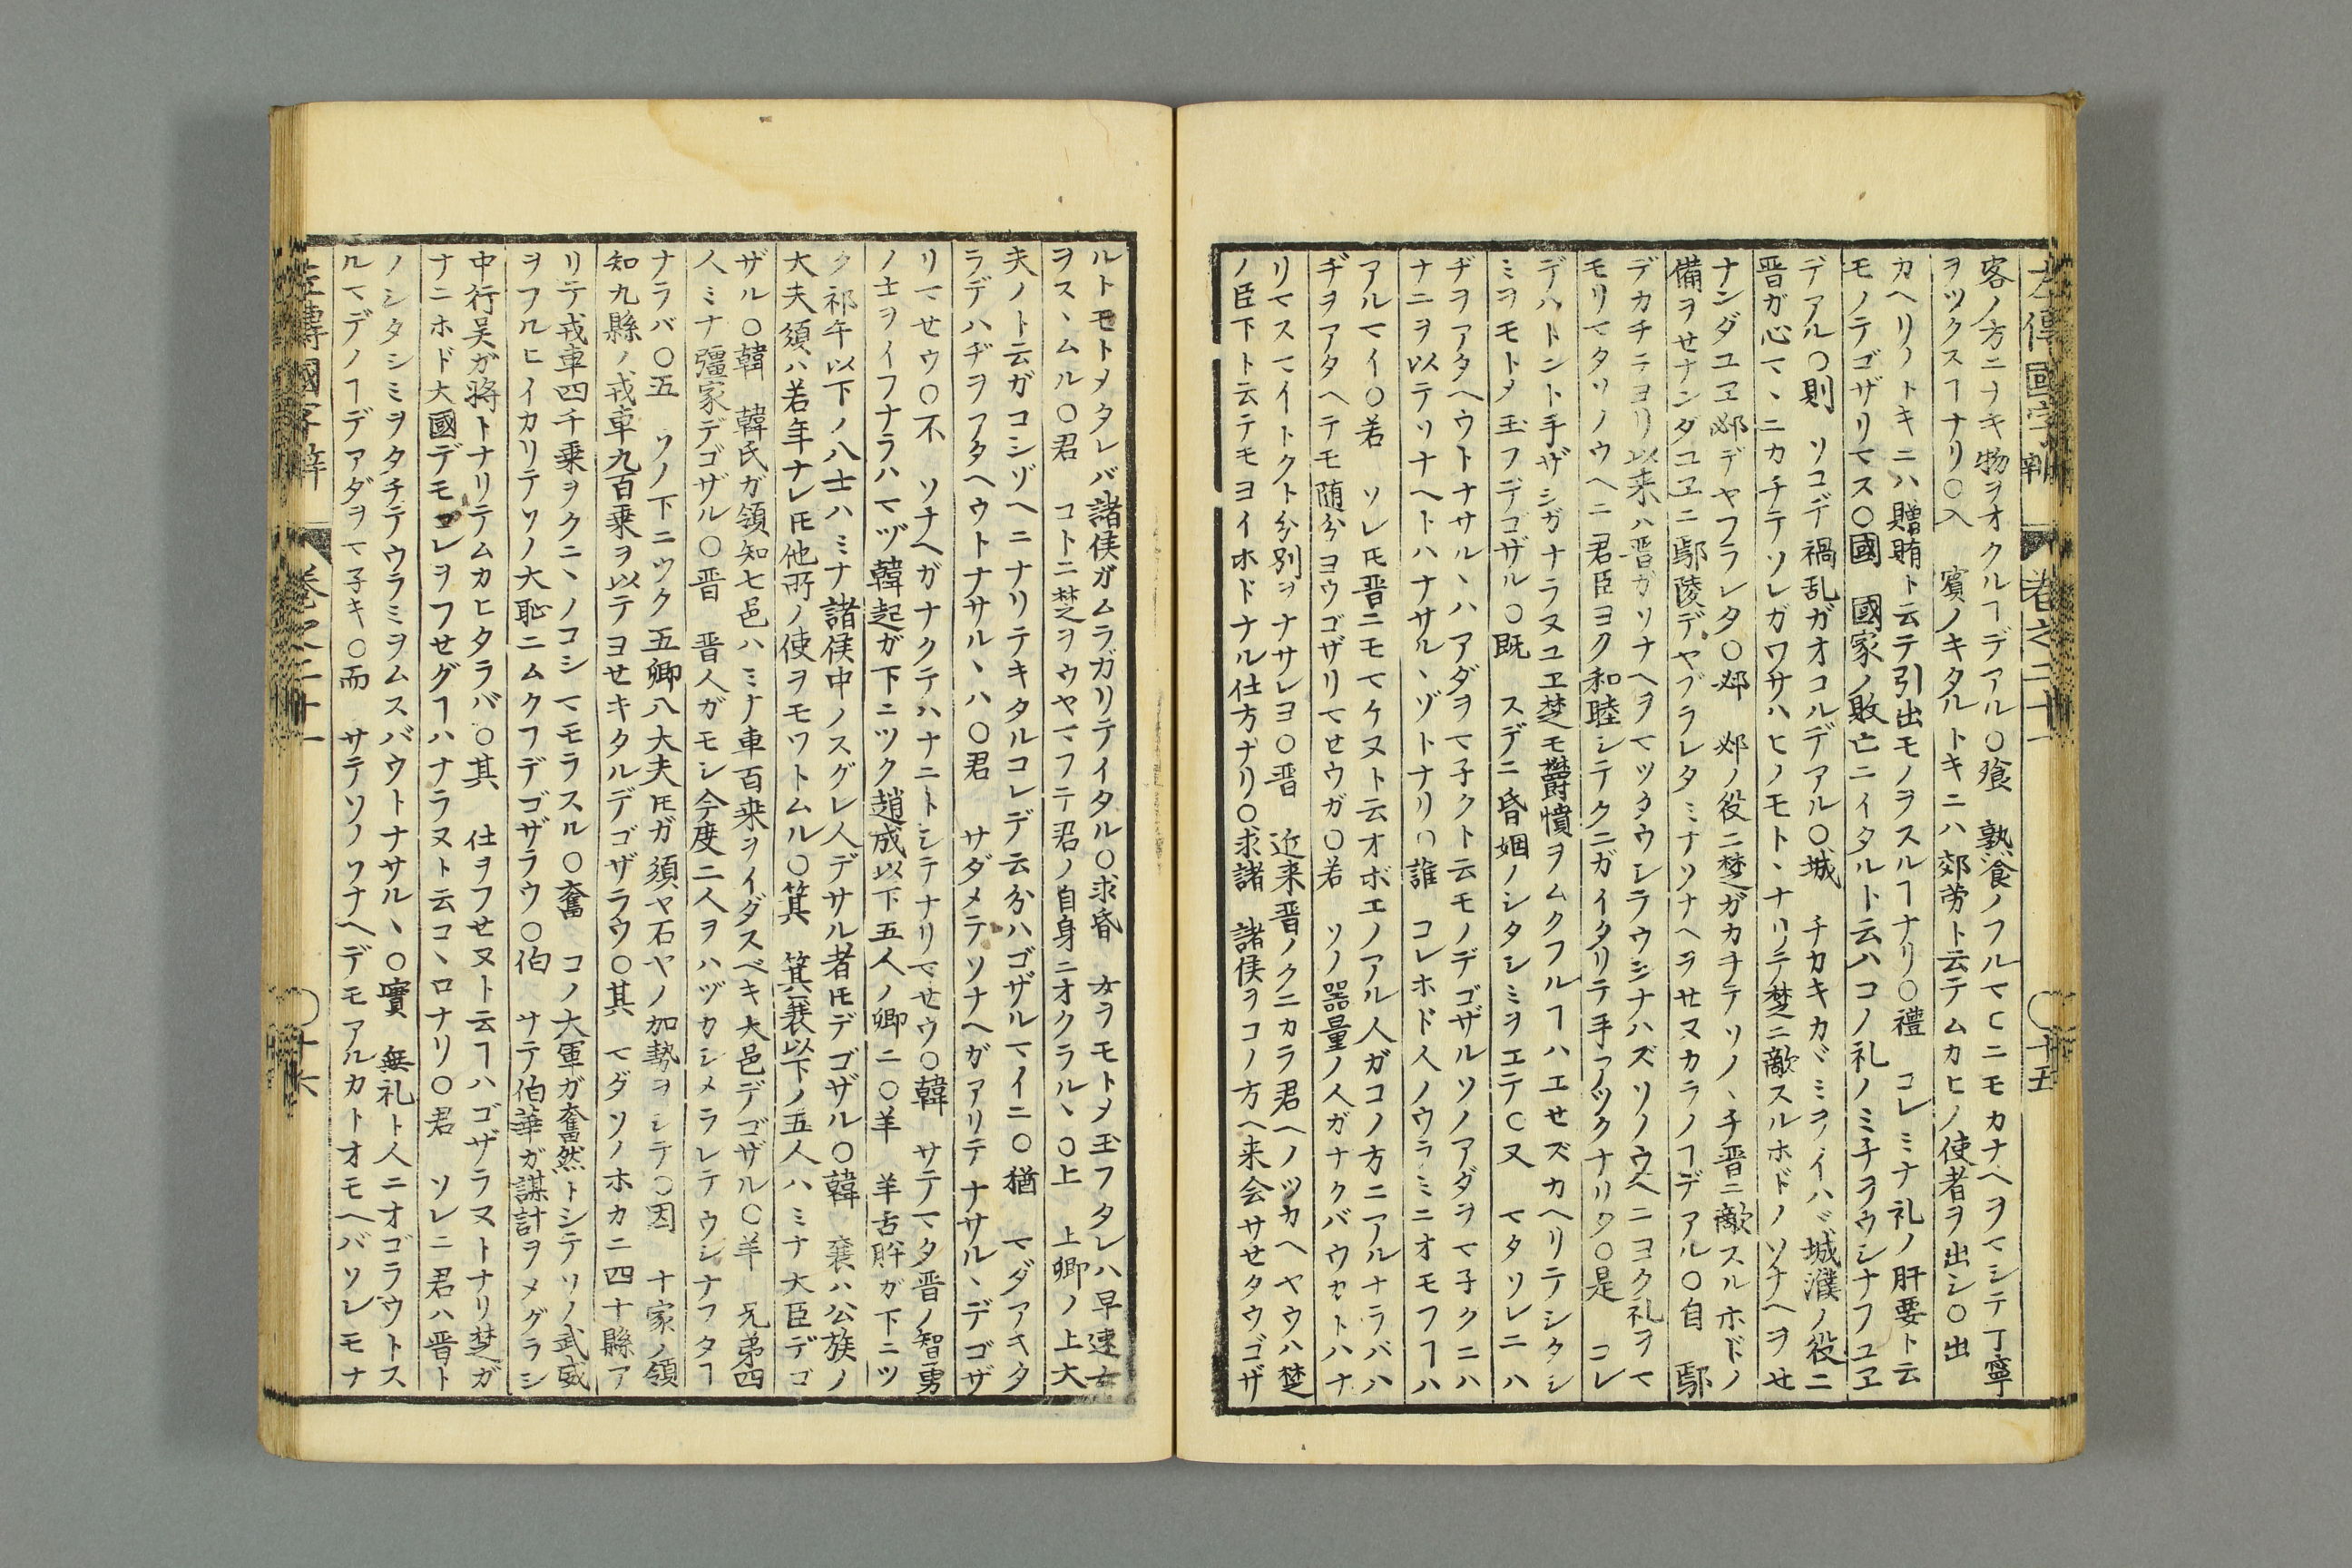 左傳國字解 卷之二十一 〇十五
客ノ方ニナキ物ヲオクルヿデアル〇飱 熟食ノフルマヒニモカナヘヲマシテ丁寧
ヲツクスヿナリ〇入 賓ノキタルトキニハ郊労ト云テムカヒノ使者ヲ出シ〇出
カヘリノトキニハ贈賄ト云テ引出モノヲスルヿナリ〇禮 コレミナ礼ノ肝要ト云
モノテゴザリマス〇國 國家ノ敗亡ニイタルト云ハコノ礼ノミチヲウシナフユヱ
デアル〇則 ソコデ禍乱ガオコルデアル〇城 チカキカヾミヲイハヾ城濮ノ役ニ
晋ガ心マヽニカチテソレガワサハヒノモトヽナリテ楚ニ敵スルホドノソナヘヲセ
ナンダユヱ邲デヤフラレタ〇邲 邲ノ役ニ楚ガカチテソノヽチ晋ニ敵スルホドノ
備ヲセナンダユヱニ鄢陵デヤブラレタミナソナヘヲセヌカラノヿデアル〇自 鄢
デカチテヨリ以来ハ晋ガソナヘヲマツタウシラウシナハズソノウヘニヨク礼ヲマ
モリマタソノウヘニ君臣ヨク和睦シテクニガイタリテ手アツクナリタ〇是 コレ
デハトント手ザシガナラヌユヱ楚モ鬱憤ヲムクフルヿハエセズカヘリテシタシ
ミヲモトメ玉フデゴザル〇既 スデニ昏姻ノシタシミヲエテ〇又 マタソレニハ
ヂヲアタヘウトナサルヽハアダヲマ子クト云モノデゴザルソノアダヲマ子クニハ
ナニヲ以テソナヘトハナサルヽゾトナリ〇誰 コレホド人ノウラミニオモフヿハ
アルマイ〇若 ソレ𪜈晋ニモマケヌト云オボエノアル人ガコノ方ニアルナラバハ
ヂヲアタヘテモ随分ヨウゴザリマセウガ〇若 ソノ器量ノ人ガナクバウカトハナ
リマスマイトクト分別ヲナサレヨ〇晋 近来晋ノクニカラ君ヘノツカヘヤウハ楚
ノ臣下ト云テモヨイホドナル仕方ナリ〇求諸 諸侯ヲコノ方ヘ来会サセタウゴザ
ルトモトメタレバ諸侯ガムラガリテイタル〇求昏 女ヲモトメ玉フタレハ早速女
ヲスヽムル〇君 コトニ楚ヲウヤマフテ君ノ自身ニオクラルヽ〇上 上卿ノ上大
夫ノト云ガコシゾヘニナリテキタルコレデ云分ハゴザルマイニ〇猶 マダアキタ
ラデハヂヲフタヘウトナサルヽハ〇君 サダメテソナヘガアリテナサルヽデゴザ
リマせウ〇不 ソナヘガナクテハナニトシテナリマせウ〇韓 サテマタ晋ノ智勇
ノ士ヲイフナラハマヅ韓起ガ下ニツク趙成以下五人ノ卿ニ〇羊 羊舌肸ガ下ニツ
ク祁午以下ノ八士ハミナ諸侯中ノスグレ人デサル者𪜈デゴザル〇韓 襄ハ公族ノ
大夫須ハ若年ナレ𪜈他所ノ使ヲモツトムル〇箕 箕襄以下ノ五人ハミナ大臣デゴ
ザル〇韓 韓氏ガ領知七邑ハミナ車百乗ヲイダスベキ大邑デゴザル〇羊 兄弟四
人ミナ彊家デゴザル〇晋 晋人ガモシ今度二人ヲハヅカシメラレテウシナフタヿ
ナラバ〇五 ソノ下ニツク五卿八大夫𪜈ガ須ヤ石ヤノ加勢ヲシテ〇因 十家ノ領
知九縣ノ戎車九百乗ヲ以テヨせキタルデゴザラウ〇其 マダソノホカニ四十縣ア
リテ戎車四千乗ヲクニヽノコシマモラスル〇奮 コノ大軍ガ奮然トシテソノ武威
ヲフルヒイカリテソノ大恥ニムクフデゴザラウ〇伯 サテ伯華ガ謀計ヲメグラシ
中行吴ガ将トナリテムカヒタラバ〇其 仕ヲフせヌト云ヿハゴザラヌトナリ楚ガ
ナニホド大國デモコレヲフせグヿハナラヌト云コヽロナリ〇君 ソレニ君ハ晋ト
ノシタシミヲタチテウラミヲムスバウトナサルヽ〇實 無礼ト人ニオゴラウトス
ルマデノヿデアダヲマ子キ〇而 サテソノソナヘデモアルカトオモヘバソレモナ
左傳國字解 卷之二十一 〇十六